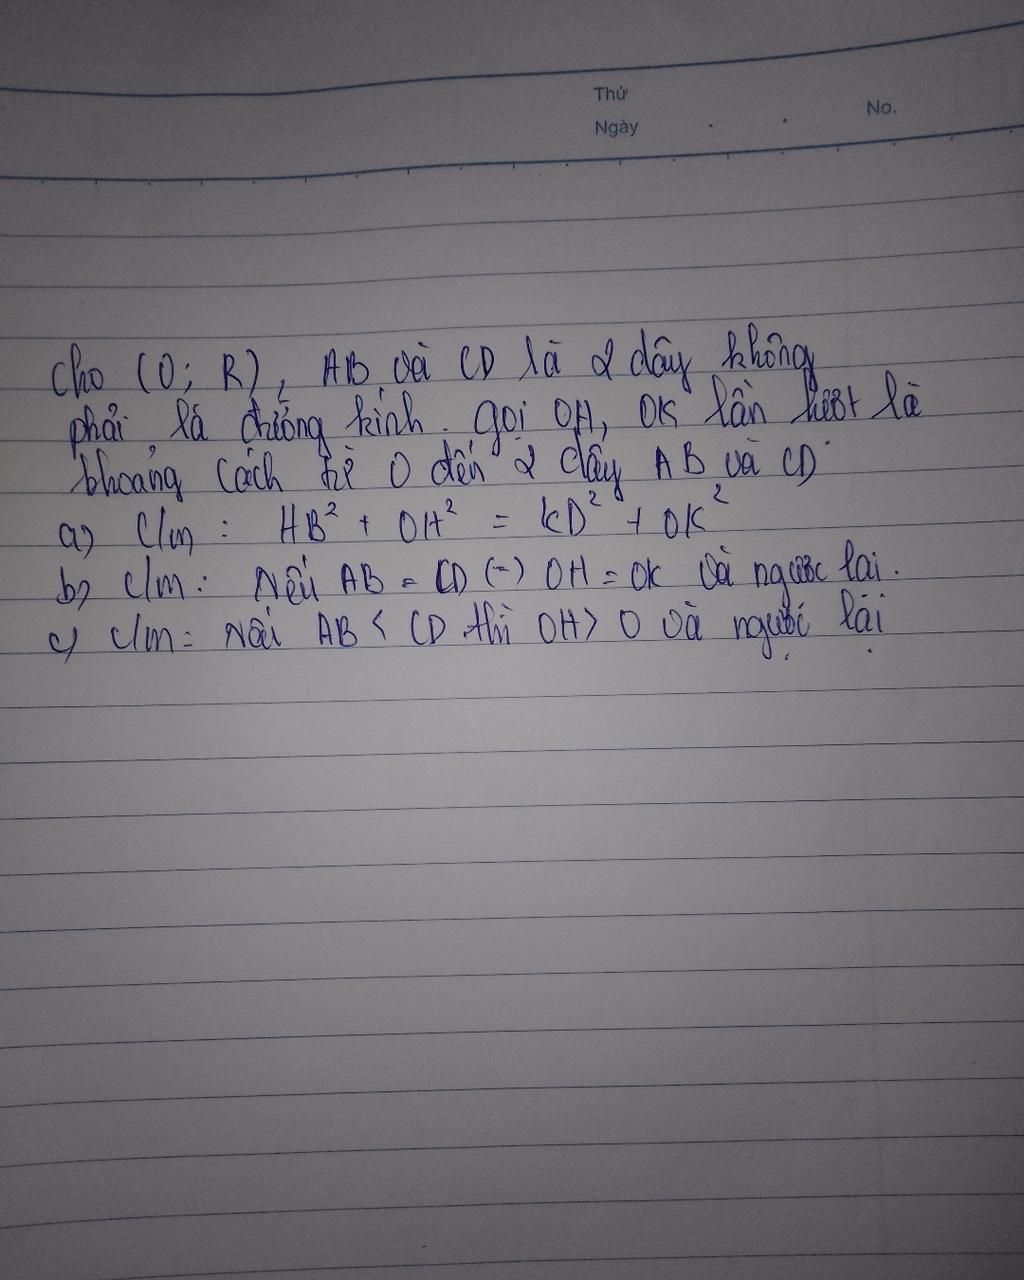 Thứ
Ngày
No.
Cho (O; R), AB và CD là 2 dây không
phải là đường kính. gọi OH, OK lần lượt là
khoảng cách từ O đến 2 dây AB và CD
a) C/m: HB² + OH² = KD² + OK²
b) C/m: Nếu AB = CD (-) OH = OK và ngược lại.
c) C/m: Nếu AB < CD thì OH > O và ngược lại